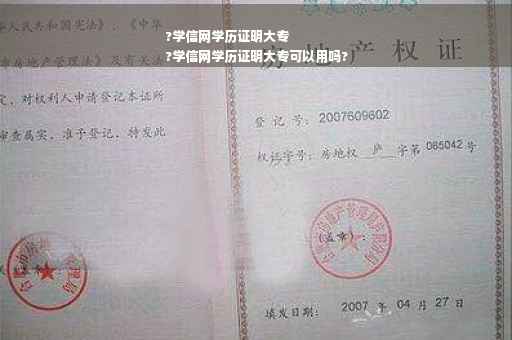 ?学信网学历证明大专
?学信网学历证明大专可以用吗?
人民共和国宪法》、《中华
房地产管理法》及有关法
定，对权利人申请登记本证所
审查属实，准予登记，特发此
房地产权证
登记号：2007609602
权证字号：房地权 庐 字第 085042 号
(盖章)：
填发日期：2007 年 04 月 27 日